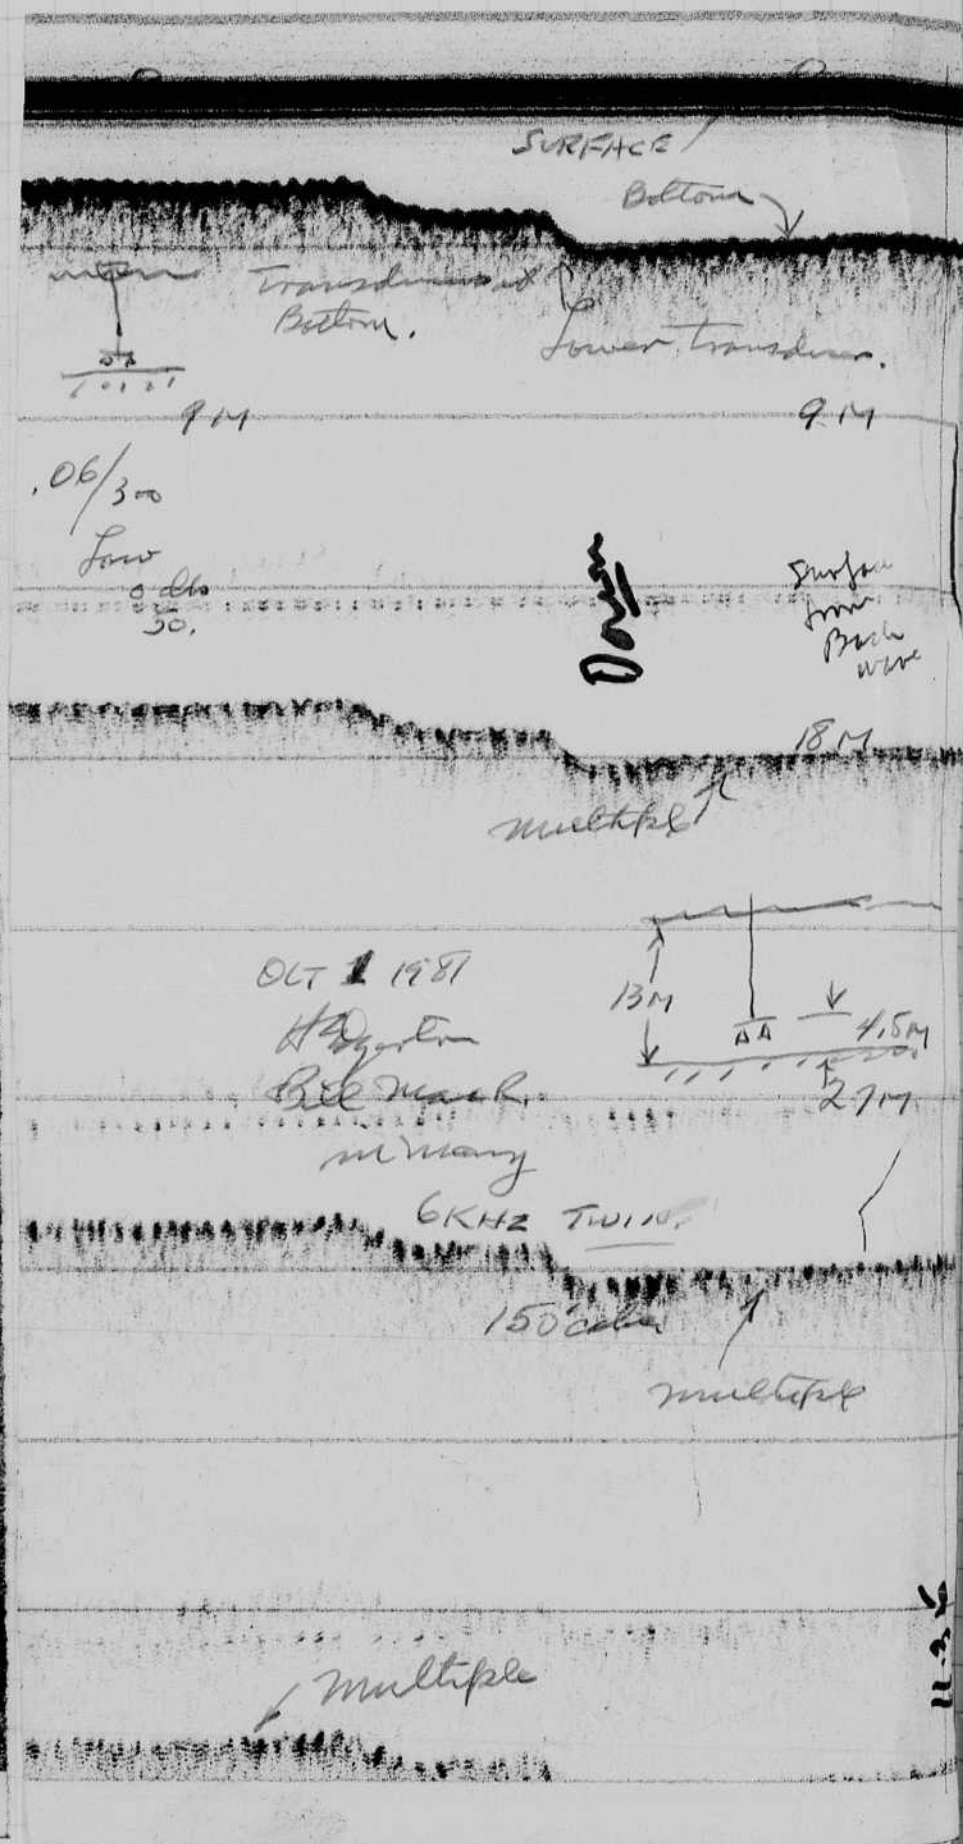 SURFACE
Bottom
Transducer at
Bottom.
Lower transducer.
9 M
9 M
.06/300
Low
0 db
50.
Down
Surface
from
Back
wave
18 M
multiple
OCT 1 1981
H Edgerton
Bill Mack
13M
4.5M
27M
6KHZ TWIN
150
multiple
multiple